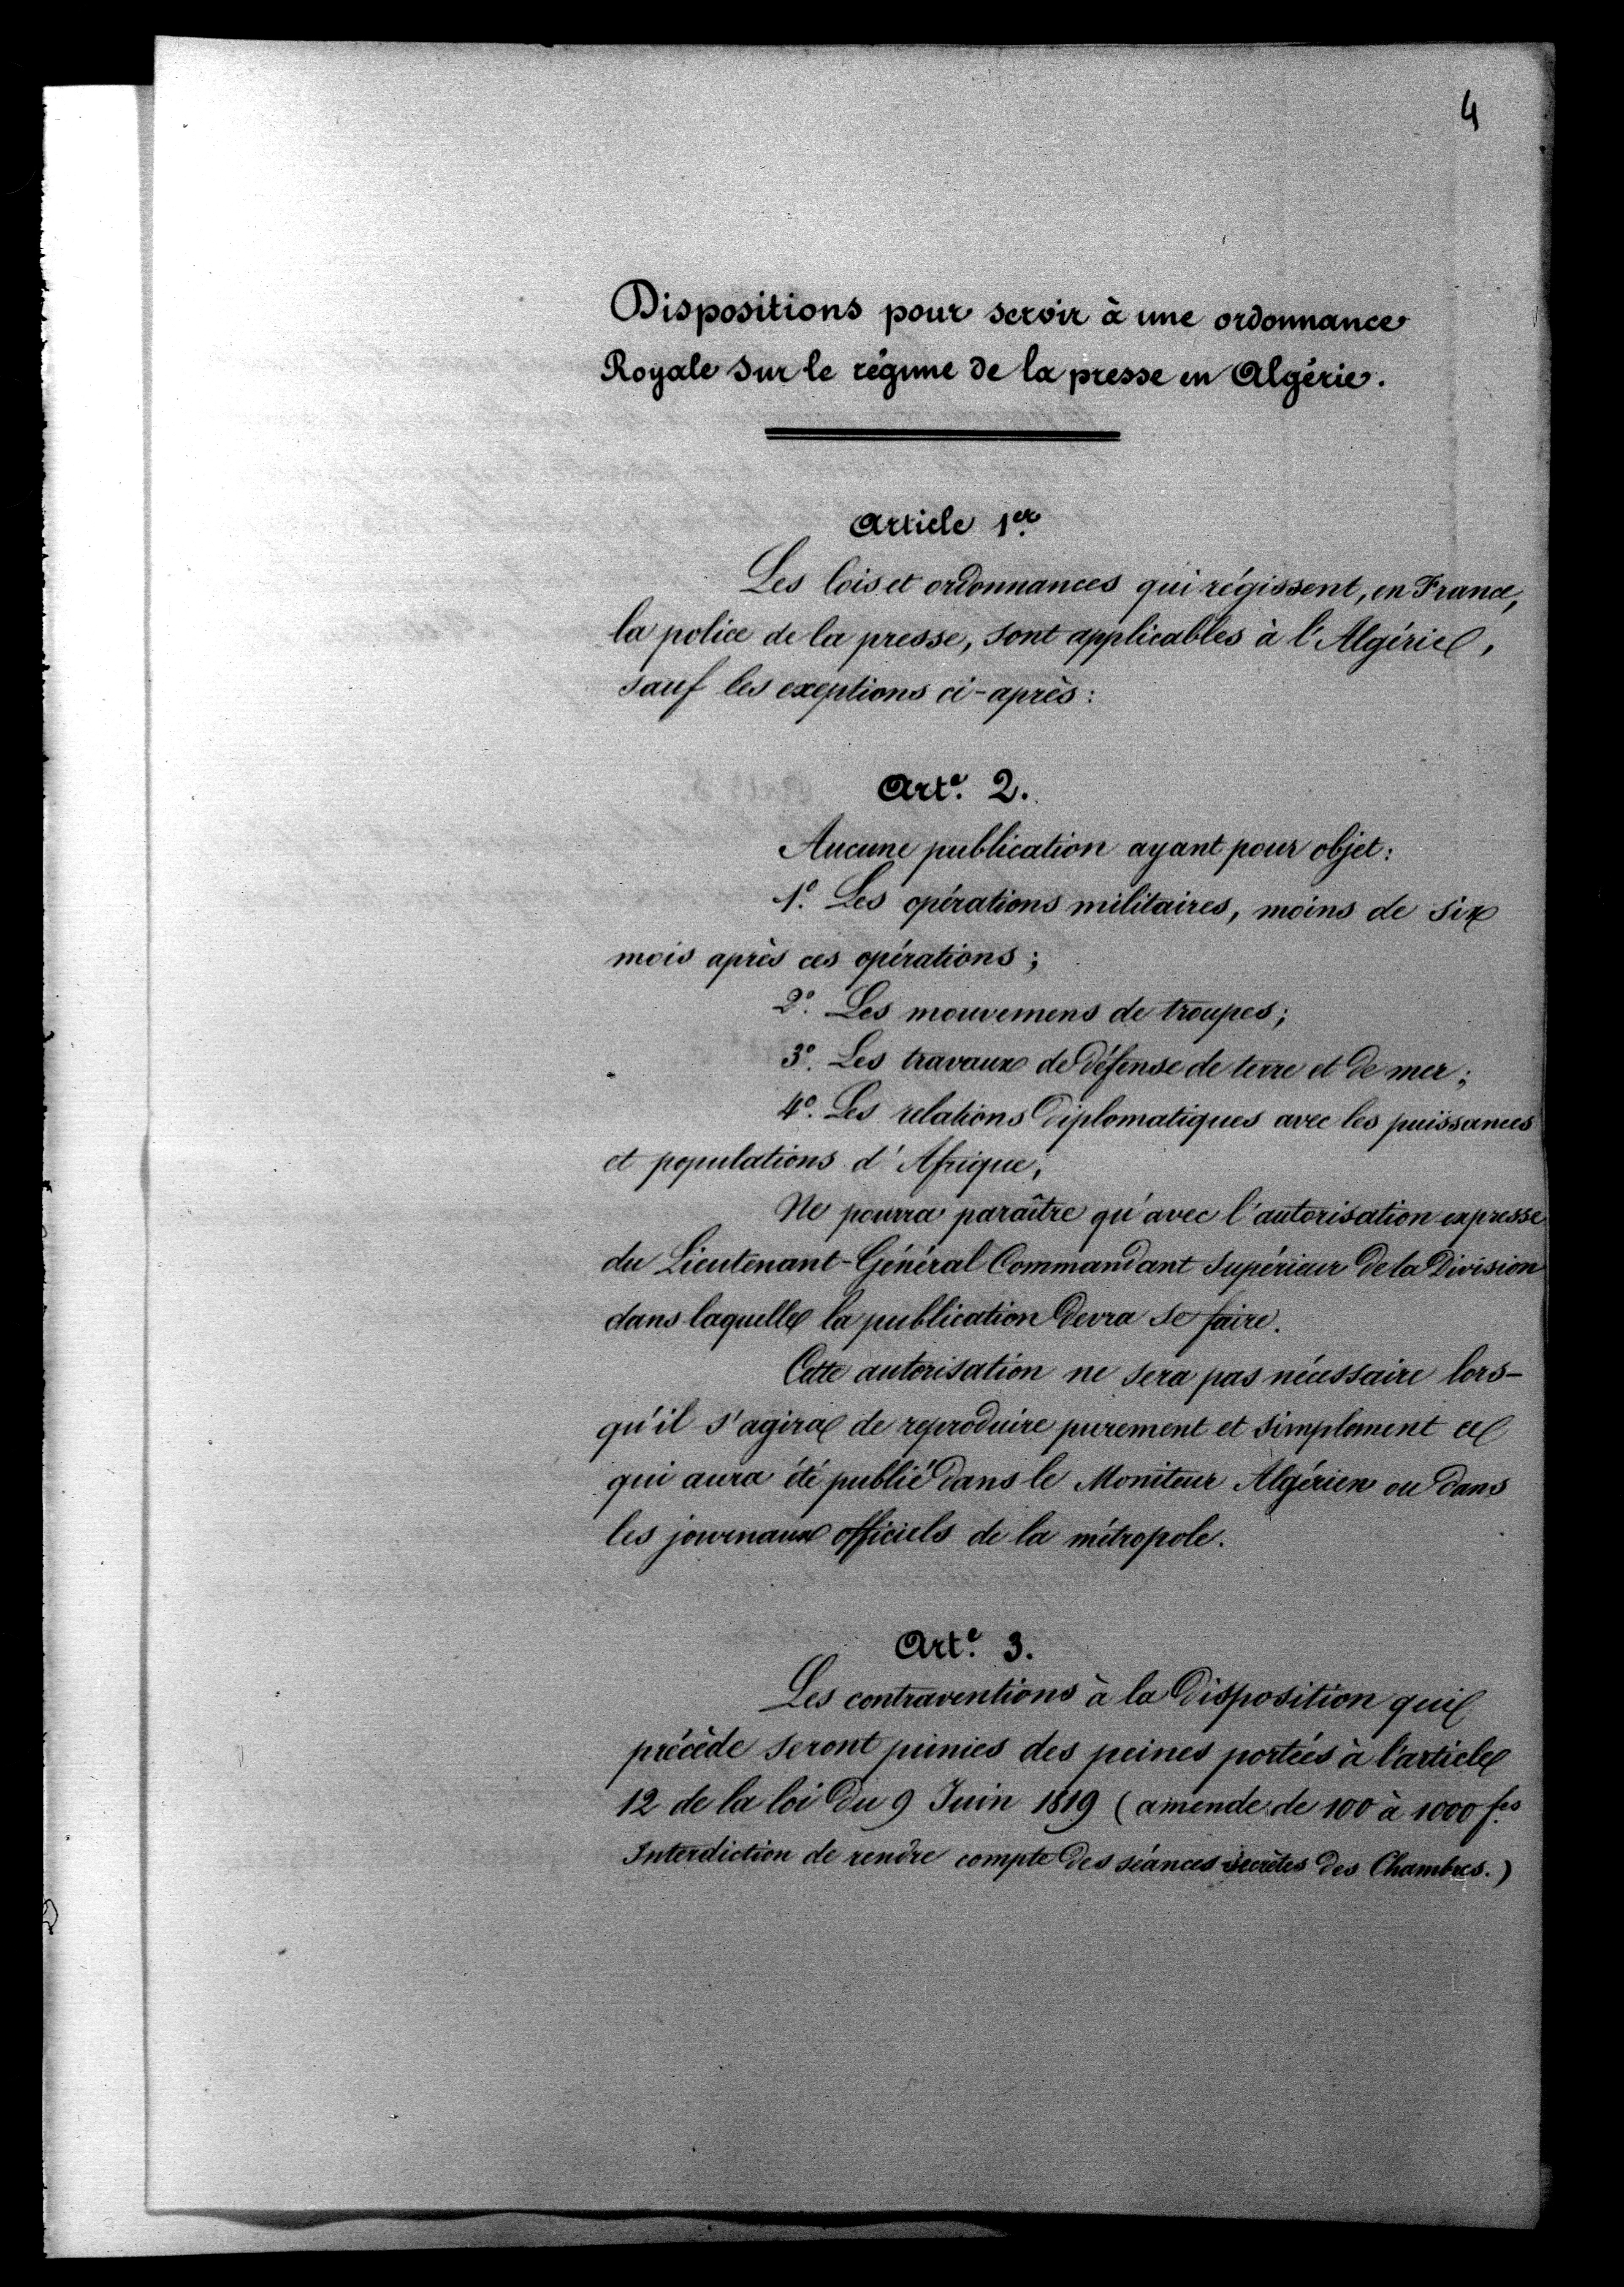 4
Dispositions pour servir à une ordonnance
Royale sur le régime de la presse en Algérie.
Article 1er
Les lois et ordonnances qui régissent, en France,
la police de la presse, sont applicables à l'Algérie,
sauf les exeptions ci-après :
Arte. 2.
Aucune publication ayant pour objet :
1º. Les opérations militaires, moins de six
mois après ces opérations ;
2º. Les mouvemens de troupes ;
3º. Les travaux de défense de terre et de mer ;
4º. Les relations diplomatiques avec les puissances
et populations d'Afrique,
Ne pourra paraître qu'avec l'autorisation expresse
du Lieutenant-Général Commandant Supérieur de la Division
dans laquelle la publication devra se faire.
Cette autorisation ne sera pas nécessaire lors-
qu'il s'agira de reproduire purement et simplement ce
qui aura été publié dans le Moniteur Algérien ou dans
les journaux officiels de la métropole.
Arte. 3.
Les contraventions à la disposition qui
précède seront punies des peines portées à l'article
12 de la loi du 9 Juin 1819 (amende de 100 à 1000 fcs
Interdiction de rendre compte des séances secrètes des Chambres.)